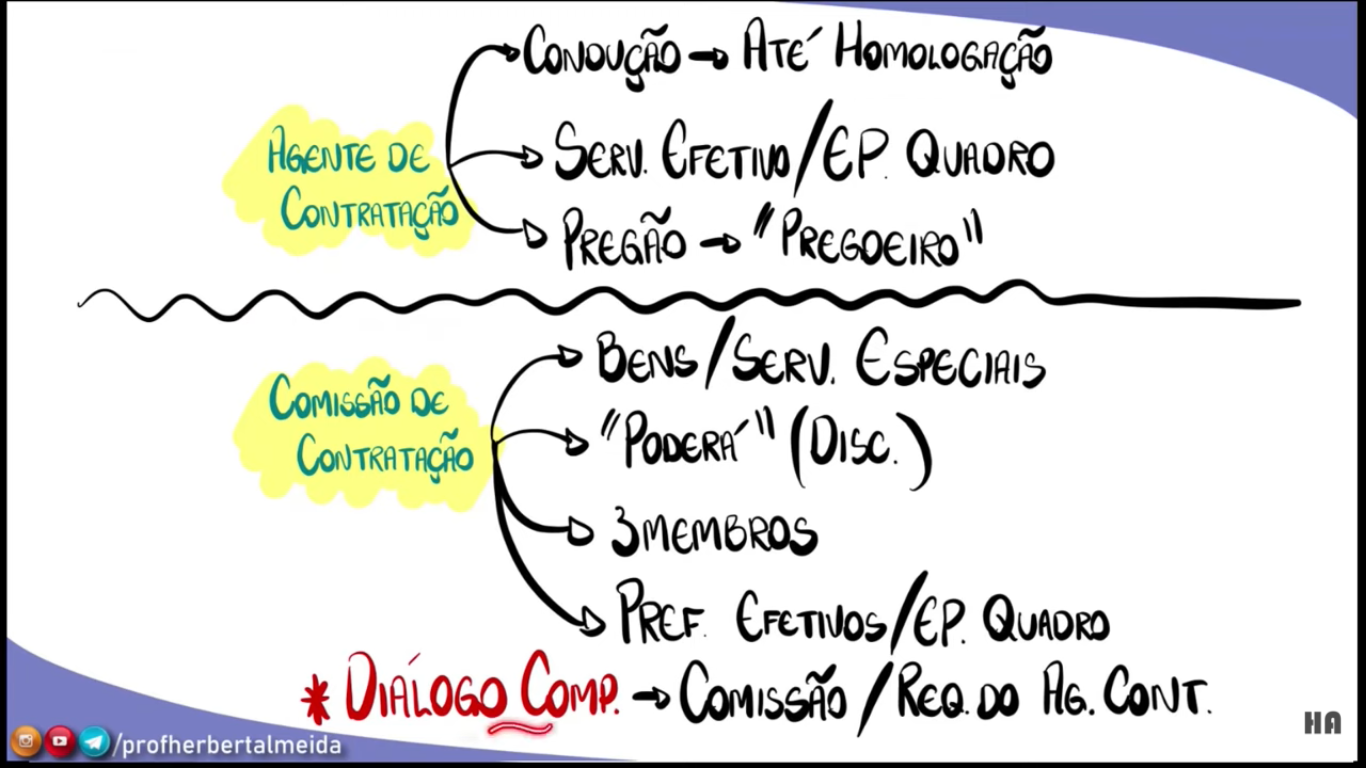 CONDUÇÃO → ATÉ HOMOLOGAÇÃO
AGENTE DE
CONTRATAÇÃO
SERV. EFETIVO/EP. QUADRO
PREGÃO → "PREGOEIRO"
COMISSÃO DE
CONTRATAÇÃO
BENS/SERV. ESPECIAIS
"PODERÁ" (DISC.)
3 MEMBROS
PREF. EFETIVOS/EP. QUADRO
* DIÁLOGO COMP. → COMISSÃO/REQ. DO AG. CONT.
/profherbertalmeida
HA